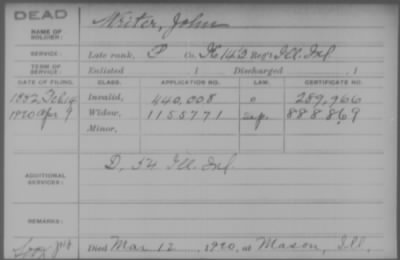 DEAD
NAME OF SOLDIER: Writer, John
SERVICE: Late rank, P Co. K 142 Reg't Ill. Inf.
TERM OF SERVICE: Enlisted , 1 Discharged , 1
DATE OF FILING. CLASS. APPLICATION NO. LAW. CERTIFICATE NO.
1882 Invalid, 440,008 289,966
1920 Apr 9 Widow, 1155771 888.869
Minor,
ADDITIONAL SERVICES: D, 54 Ill. Inf.
REMARKS:
Died Mar 12, 1920, at Mason, Ill.